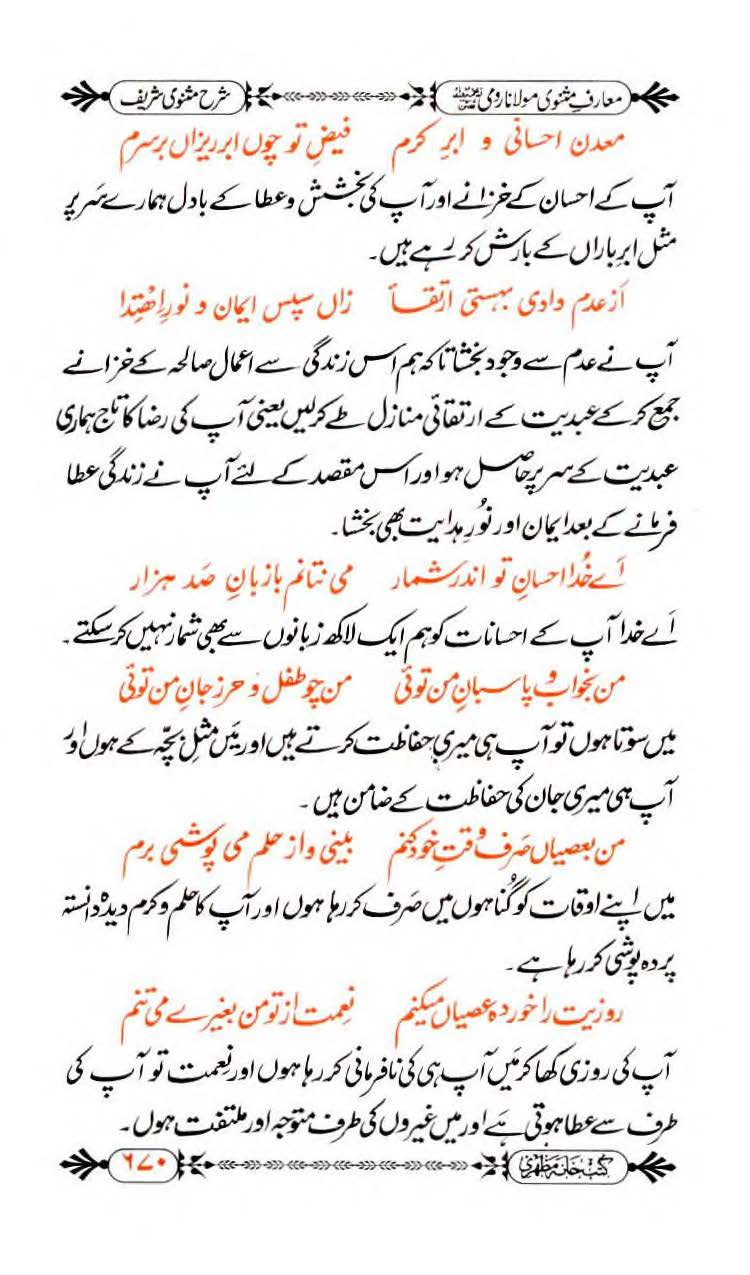 معارفِ مثنوی مولانا رومی رحمۃ اللہ علیہ
شرح مثنوی شریف
معدن احسانی و ابرِ کرم فیضِ تو چوں ابر ریزاں بر سرم
آپ کے احسان کے خزانے اور آپ کی بخشش و عطا کے بادل ہمارے سَر پر
مثل ابرِ باراں کے بارش کر رہے ہیں۔
اَز عدم دادی بہستی ارتقأ زاں سپس ایمان و نورِ اِھْتِدا
آپ نے عدم سے وجود بخشا تاکہ ہم اس زندگی سے اعمالِ صالحہ کے خزانے
جمع کر کے عبدیت کے ارتقائی منازل طے کر لیں یعنی آپ کی رضا کا تاج ہماری
عبدیت کے سر پر حاصل ہو اور اس مقصد کے لئے آپ نے زندگی عطا
فرمانے کے بعد ایمان اور نُورِ ہدایت بھی بخشا۔
اَے خُدا احسانِ تو اندر شمار می نتانم با زبانِ صَد ہزار
اَے خدا آپ کے احسانات کو ہم ایک لاکھ زبانوں سے بھی شمار نہیں کر سکتے۔
من بخواب و پاسبانِ من توئی من چو طفل و حرزِ جانِ من توئی
میں سوتا ہوں تو آپ ہی میری حفاظت کرتے ہیں اور مَیں مثلِ بچّہ کے ہوں اور
آپ ہی میری جان کی حفاظت کے ضامن ہیں۔
من بعصیاں صَرف وقتِ خود کنم بینی و از حلم می پوشی برم
میں اپنے اوقات کو گُناہوں میں صَرف کر رہا ہوں اور آپ کا حلم و کرم دیدہ دانستہ
پردہ پوشی کر رہا ہے۔
روزیت را خوردہ عصیاں میکنم نعمت از تو من بغیرے می تنم
آپ کی روزی کھا کر مَیں آپ ہی کی نافرمانی کر رہا ہوں اور نعمت تو آپ کی
طرف سے عطا ہوتی ہَے اور میں غیروں کی طرف متوجہ اور ملتفت ہوں۔
کتب خانہ مظہری
۶۷۰